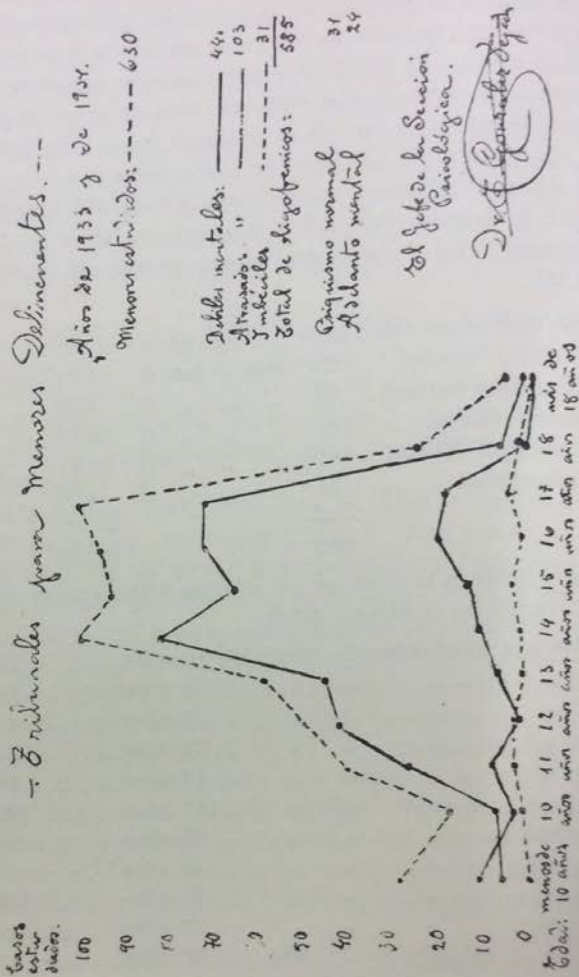 - Tribunales para Menores Delincuentes. --
Años de 1933 y de 1934.
Menores estudiados: ----- 630
Débiles mentales: ——— 440
Atrasados " ——— 103
Imbéciles -------- 31
Total de oligofrenicos: 585
Psiquismo normal 31
Adelanto mental 24
El Jefe de la Sección
Psicológica.
Casos
estu
diados.
100
90
70
50
40
30
20
10
0
Edad: menos de 10 años
10 años
11 años
12 años
13 años
14 años
15 años
16 años
17 años
18 años
más de 18 años